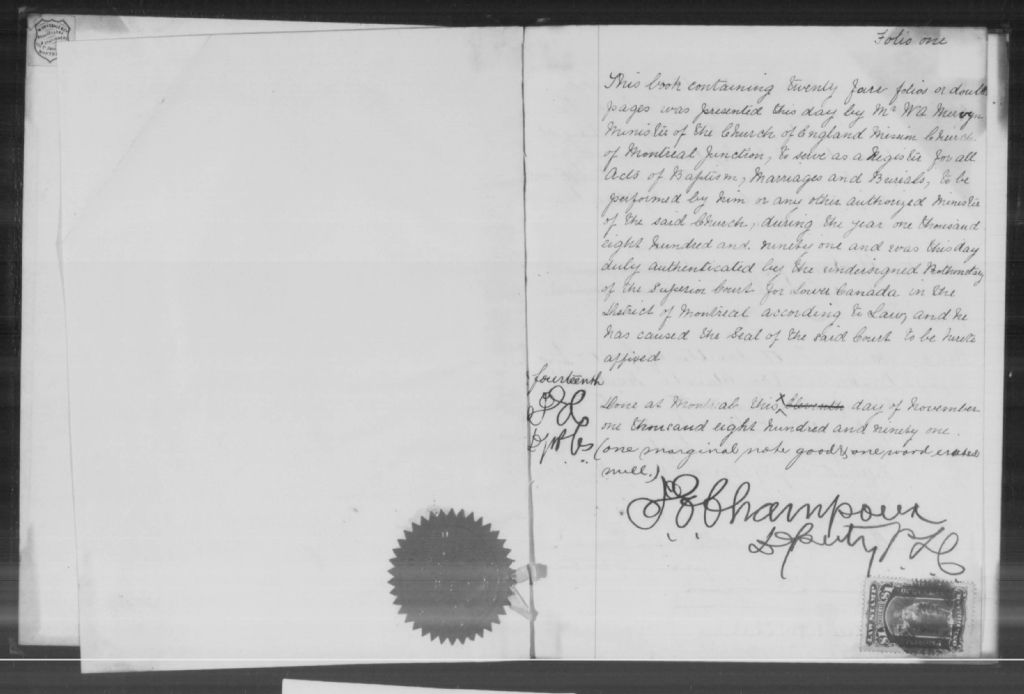 Folio one
This book containing twenty four folios or double
pages was presented this day by Mr W A Mervyn
Minister of the Church of England Mission Church
of Montreal Junction, to serve as a Register for all
Acts of Baptism, Marriages and Burials, to be
performed by him or any other authorized Minister
of the said Church, during the year one thousand
eight hundred and ninety one and was this day
duly authenticated by the undersigned Prothonotary
of the Superior Court for Lower Canada in the
District of Montreal according to Law, and he
has caused the Seal of the said Court to be hereto
affixed
fourteenth
Done at Montreal this eleventh day of November
one thousand eight hundred and ninety one.
(one marginal note good & one word erased
null.)
Champoux
Deputy P.S.C.